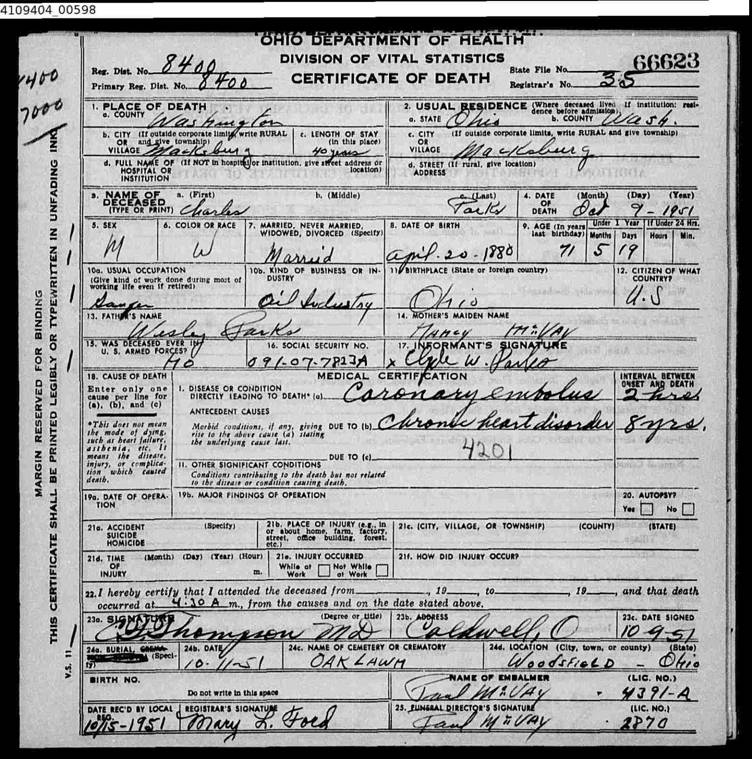 4109404_00598
OHIO DEPARTMENT OF HEALTH
DIVISION OF VITAL STATISTICS
CERTIFICATE OF DEATH
Reg. Dist. No. 8400
Primary Reg. Dist. No. 8400
State File No. 66623
Registrar's No. 35
1400
7000
MARGIN RESERVED FOR BINDING
THIS CERTIFICATE SHALL BE PRINTED LEGIBLY OR TYPEWRITTEN IN UNFADING INK
V.S. 11
1. PLACE OF DEATH
a. COUNTY Washington
2. USUAL RESIDENCE (Where deceased lived. If institution: residence before admission).
a. STATE Ohio b. COUNTY Wash.
b. CITY (If outside corporate limits, write RURAL OR and give township) VILLAGE Macksburg
c. LENGTH OF STAY (in this place) 40 years
c. CITY (If outside corporate limits, write RURAL and give township) OR VILLAGE Macksburg
d. FULL NAME OF (If NOT in hospital or institution, give street address or location) HOSPITAL OR INSTITUTION
d. STREET (If rural, give location) ADDRESS
3. NAME OF DECEASED (TYPE OR PRINT) a. (First) Charles b. (Middle) c. (Last) Parks
4. DATE OF DEATH (Month) (Day) (Year) Oct 9-1951
5. SEX M
6. COLOR OR RACE W
7. MARRIED, NEVER MARRIED, WIDOWED, DIVORCED (Specify) Married
8. DATE OF BIRTH April-20-1880
9. AGE (In years last birthday) 71 Under 1 Year Months 5 Days 19 If Under 24 Hrs. Hours Min.
10a. USUAL OCCUPATION (Give kind of work done during most of working life even if retired) Gauger
10b. KIND OF BUSINESS OR INDUSTRY Oil Industry
11. BIRTHPLACE (State or foreign country) Ohio
12. CITIZEN OF WHAT COUNTRY? U.S
13. FATHER'S NAME Wesley Parks
14. MOTHER'S MAIDEN NAME Nancy McVay
15. WAS DECEASED EVER IN U. S. ARMED FORCES? No
16. SOCIAL SECURITY NO. 091-07-7813A
17. INFORMANT'S SIGNATURE x Clyde W. Parks
18. CAUSE OF DEATH
Enter only one cause per line for (a), (b), and (c)
*This does not mean the mode of dying, such as heart failure, asthenia, etc. It means the disease, injury, or complication which caused death.
MEDICAL CERTIFICATION
INTERVAL BETWEEN ONSET AND DEATH
I. DISEASE OR CONDITION DIRECTLY LEADING TO DEATH* (a) Coronary embolus 2 hrs
ANTECEDENT CAUSES
Morbid conditions, if any, giving rise to the above cause (a) stating the underlying cause last.
DUE TO (b) Chronic heart disorder 8 yrs.
DUE TO (c)
4201
II. OTHER SIGNIFICANT CONDITIONS
Conditions contributing to the death but not related to the disease or condition causing death.
19a. DATE OF OPERATION
19b. MAJOR FINDINGS OF OPERATION
20. AUTOPSY? Yes No
21a. ACCIDENT SUICIDE HOMICIDE (Specify)
21b. PLACE OF INJURY (e.g., in or about home, farm, factory, street, office building, forest, etc.)
21c. (CITY, VILLAGE, OR TOWNSHIP) (COUNTY) (STATE)
21d. TIME OF INJURY (Month) (Day) (Year) (Hour) m.
21e. INJURY OCCURRED While at Work Not While at Work
21f. HOW DID INJURY OCCUR?
22. I hereby certify that I attended the deceased from , 19 , to , 19 , and that death
occurred at 4:30 A m., from the causes and on the date stated above.
23a. SIGNATURE (Degree or title) Thompson MD
23b. ADDRESS Caldwell, O
23c. DATE SIGNED 10-9-51
24a. BURIAL, (Specify)
24b. DATE 10-11-51
24c. NAME OF CEMETERY OR CREMATORY OAK LAWN
24d. LOCATION (City, town, or county) (State) WOODSFIELD - OHIO
BIRTH NO.
Do not write in this space
NAME OF EMBALMER Paul McVAY (LIC. NO.) 4391-A
DATE REC'D BY LOCAL REG. 10/15-1951
REGISTRAR'S SIGNATURE Mary L. Ford
25. FUNERAL DIRECTOR'S SIGNATURE Paul McVAY (LIC. NO.) 2870